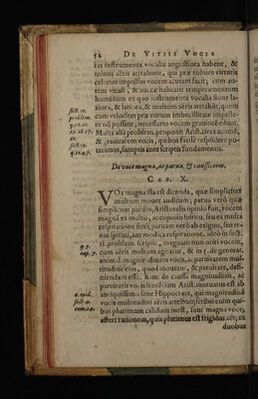 54 DE VITIIS VOCIS
iusinstrumenta vocalia angustiora habent, &
minùs aëris attrahunt, quod præ robore virtutis
celerius impulsu vocem acutam facit; cum au-
tem vituli, & vaccæ habeant temperamentum
humidum ex quo instrumenta vocalia sunt la-
xiora, & latiora, & multum aëris attrahāt, quem
cum velociter præ eorum imbecillitate impelle-
re nō possint, necessario vocem grauiorē edunt.
Multa alia problēm. proponit Arist. circa acumē,
& grauitatem vocis, quibus facilè respōdere po-
terimus, sumptis ante scriptis fundamentis.
sect. 11.
problem.
sect. 19.
De voce magna, ac parua, & causis eius.
CAP. X.
VOx magna illa est dicenda, quæ simpliciter
multum mouet auditum; parua verò quæ
simpliciter parùm. Aristotelis opinio fuit, vocem
magnā ex multo, ac copioso spiritu, seu ex multa
respiratione fieri; paruam verò ab exiguo, seu te-
nui spiritu, aut modica respiratione, ideò in sect.
11. problem. scripsit, magnam tum oriri vocem,
cum aër multum agitatur, & in 5. de generat.
animal. magnitudinem vocis, ac paruitatem mul-
titudine eius, quod mouetur, & paruitate, defi-
niendam esse. hanc de causa magnitudinis, ac
paruitatis vocis sententiam Arist. mutuatus est ab
antiquissimo sene Hippocrate, qui magnitudinē
vocis multitudini aëris attribuit, scribit enim qui-
bus plurimum calidum inest, sunt magna voce;
affert rationem, quia plurimus est frigidus aër; ex
duobus
5. 7.
cap. 7.
6. epid.
sect. 4.